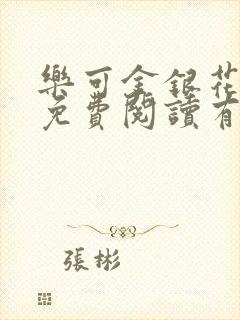 樂可金銀花
免費閱讀有
張彬